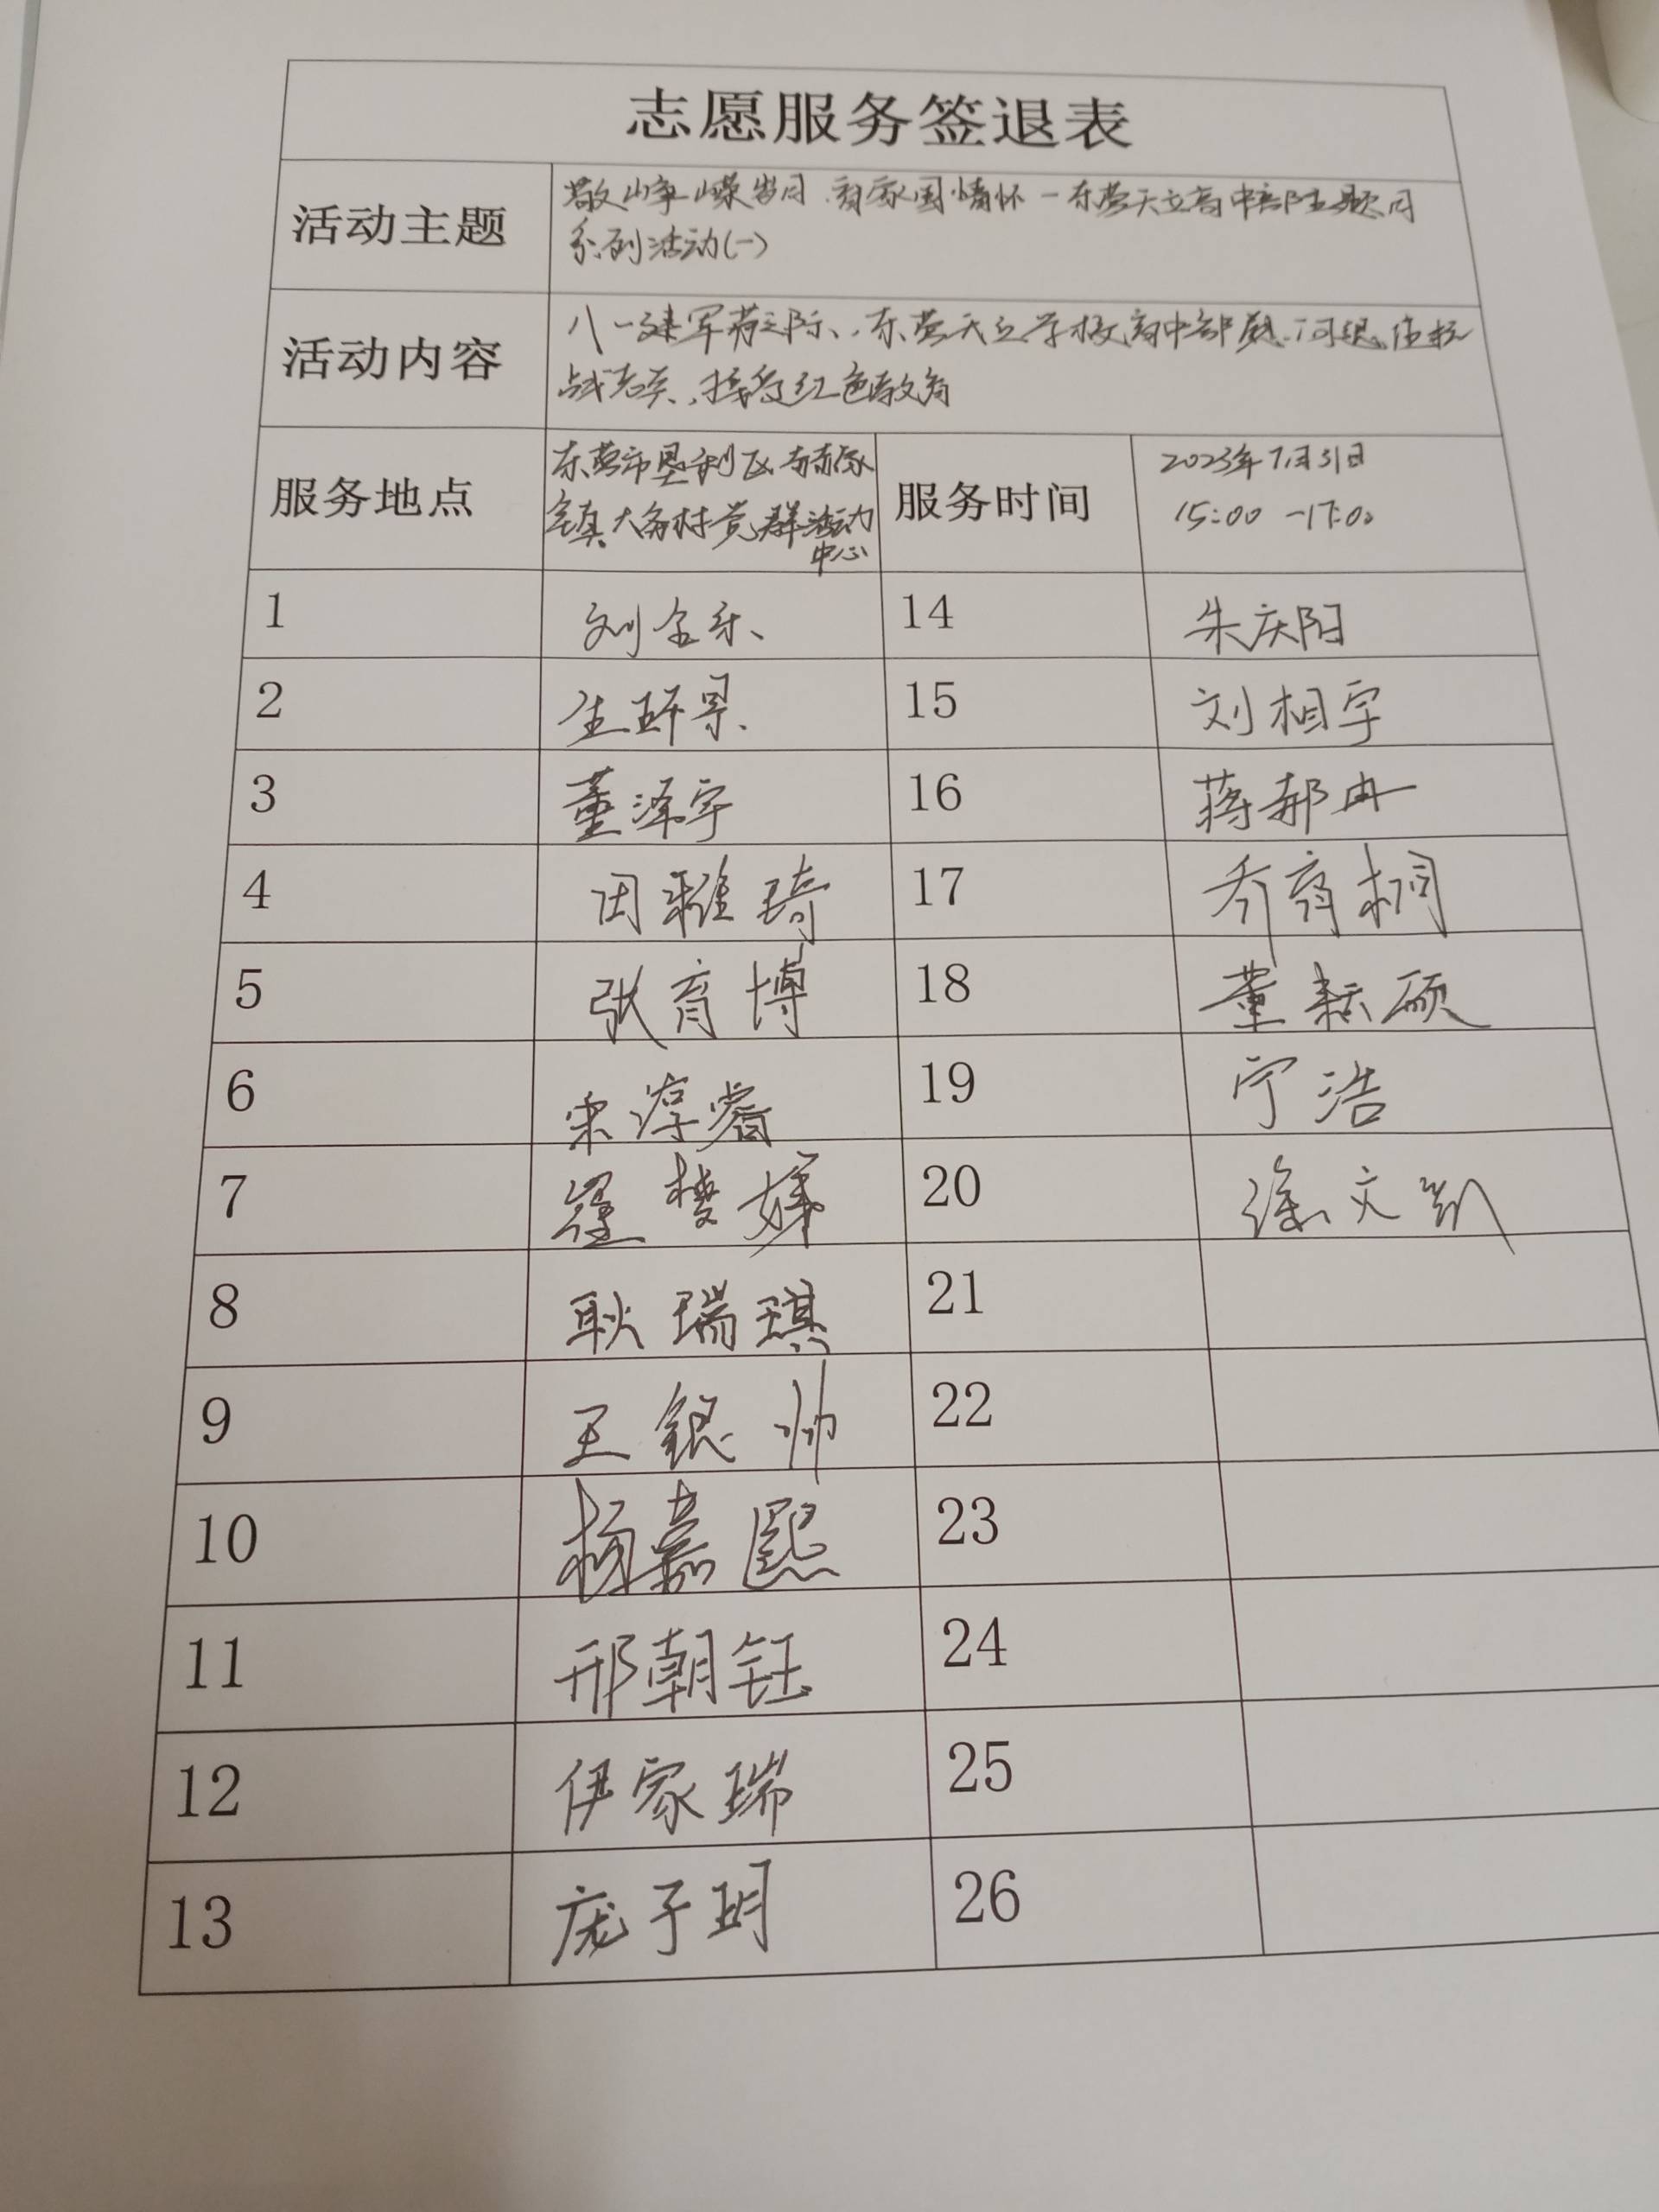 志愿服务签退表
活动主题
敬峥嵘岁月,育家国情怀-东营天立高中部主题月
系列活动(一)
活动内容
八一建军节之际,东营天立学校高中部慰问退伍抗
战老兵,接受红色教育
服务地点
东营市垦利区郝家
镇大务村党群活动
中心
服务时间
2023年7月31日
15:00-17:00
1 刘金乐
14 朱庆阳
2 生环景
15 刘相宇
3 董泽宇
16 蒋郝冉
4 田雅琦
17 乔育桐
5 张育博
18 董耘硕
6 宋淳睿
19 宁浩
7
20 徐文凯
8 耿瑞琪
21
9 王银帅
22
10 杨嘉熙
23
11 邢朝钰
24
12 伊家瑞
25
13 庞子玥
26